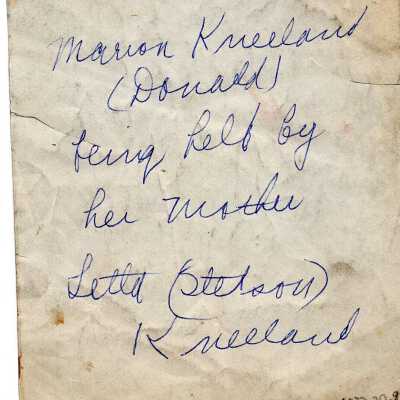 Marion Kneeland
(Donald)
being held by
her Mother
Letta (Stetson)
Kneeland